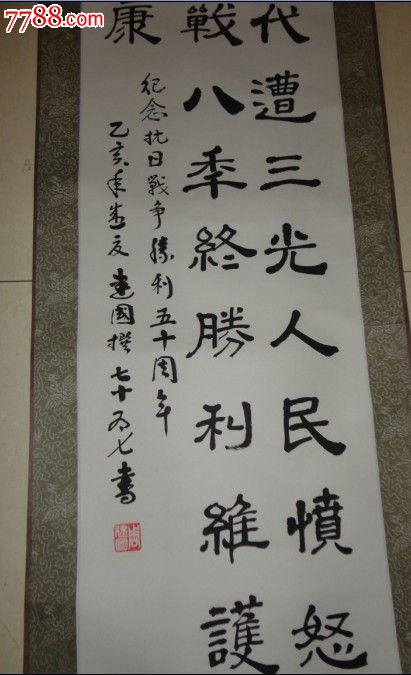 7788.com
代遭三光人民憤怒
戰八年終勝利維護
康
纪念抗日战争胜利五十周年
乙亥年盛夏建國撰七十有七書